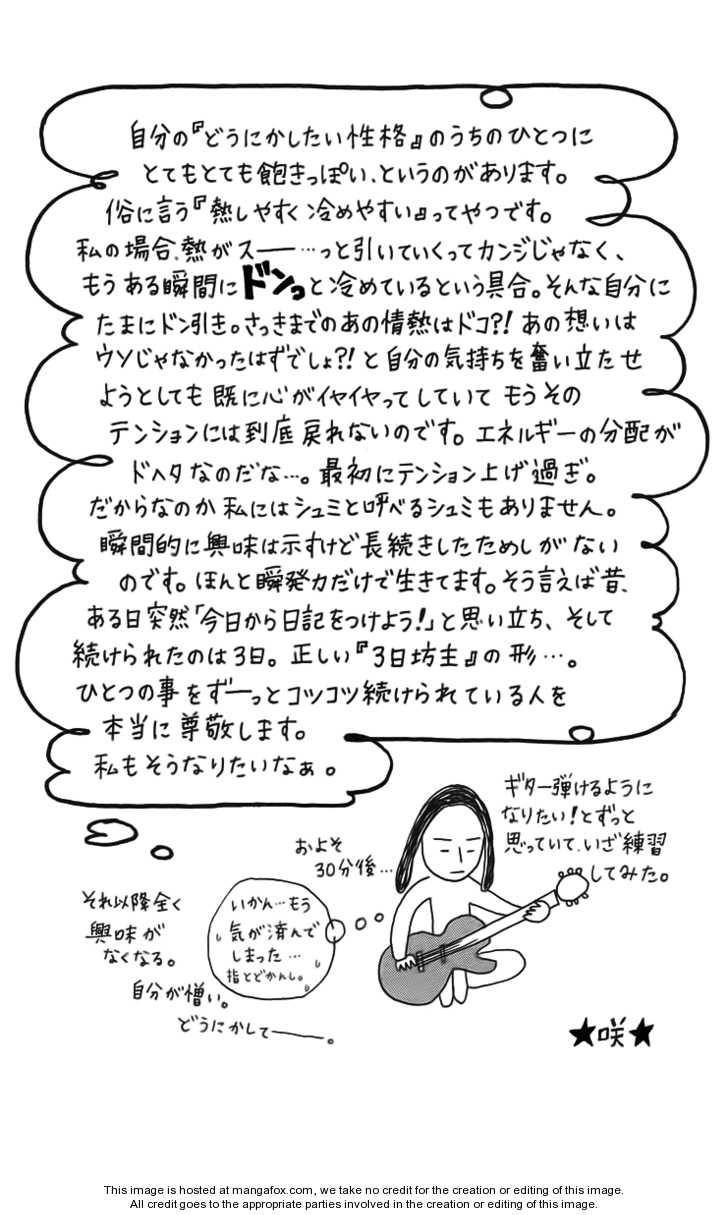 自分の『どうにかしたい性格』のうちのひとつに
とてもとても飽きっぽい、というのがあります。
俗に言う『熱しやすく冷めやすい』ってやつです。
私の場合、熱がスー――…っと引いていくってカンジじゃなく、
もうある瞬間にドンっと冷めているという具合。そんな自分に
たまにドン引き。さっきまでのあの情熱はドコ?! あの想いは
ウソじゃなかったはずでしょ?! と自分の気持ちを奮い立たせ
ようとしても既に心がイヤイヤってしていてもうその
テンションには到底戻れないのです。エネルギーの分配が
ドヘタなのだな…。最初にテンション上げ過ぎ。
だからなのか私にはシュミと呼べるシュミもありません。
瞬間的に興味は示すけど長続きしたためしがない
のです。ほんと瞬発力だけで生きてます。そう言えば昔、
ある日突然「今日から日記をつけよう!」と思い立ち、そして
続けられたのは3日。正しい『3日坊主』の形…。
ひとつの事をずーっとコツコツ続けられている人を
本当に尊敬します。
私もそうなりたいなぁ。
ギター弾けるように
なりたい!とずっと
思っていて、いざ練習
してみた。
およそ
30分後…
いかん…もう
気が済んで
しまった…
指とどかんし。
それ以降全く
興味が
なくなる。
自分が憎い。
どうにかして―――。
★咲★
This image is hosted at mangafox.com, we take no credit for the creation or editing of this image.
All credit goes to the appropriate parties involved in the creation or editing of this image.